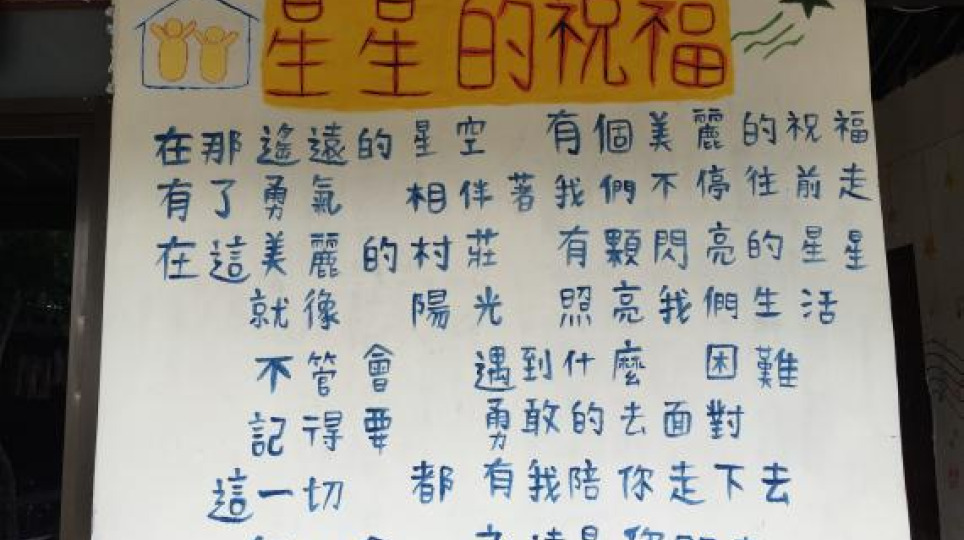 星星的祝福
在那遙遠的星空 有個美麗的祝福
有了勇氣 相伴著我們不停往前走
在這美麗的村莊 有顆閃亮的星星
就像 陽光 照亮我們生活
不管會 遇到什麼 困難
記得要 勇敢的去面對
這一切 都有我陪你走下去